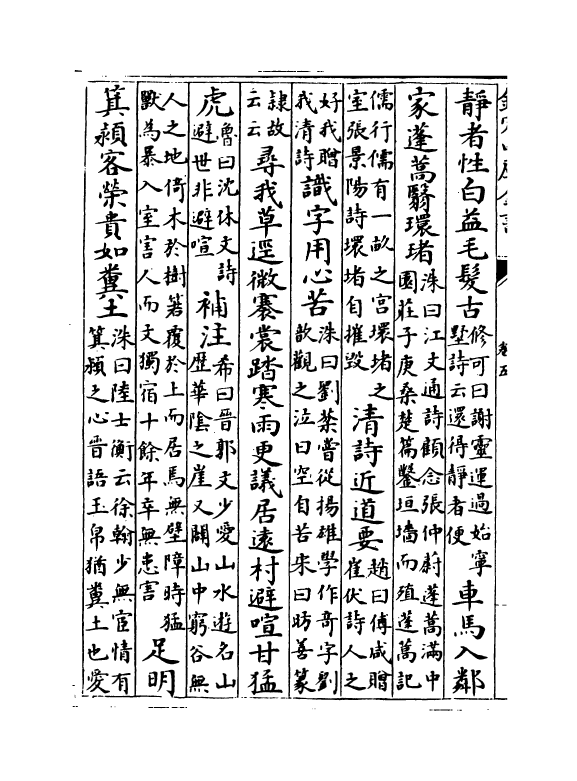 欽定四庫全書
卷五
靜者性白益毛髮古
修可曰謝靈運過始寧
墅詩云還得靜者便
車馬入鄰
家蓬蒿翳環堵
洙曰江文通詩顧念張仲蔚蓬蒿滿中
園莊子庚桑楚篇鑿垣墻而殖蓬蒿記
儒行儒有一畝之宫環堵之
室張景陽詩環堵自摧毁
清詩近道要
趙曰傅咸贈
崔伏詩人之
好我贈
我清詩
識字用心苦
洙曰劉棻嘗從揚雄學作奇字劉
歆觀之泣曰空自苦宋曰昉善篆
隷故
云云
尋我草逕微褰裳踏寒雨更議居遠村避喧甘猛
虎
魯曰沈休文詩
避世非避喧
補注
希曰晉郭文少愛山水遊名山
歴華陰之崖又闢山中窮谷無
人之地倚木於樹苫覆於上而居焉無壁障時猛
獸為暴入室害人而文獨宿十餘年卒無患害
足明
箕潁客榮貴如糞土
洙曰陸士衡云徐翰少無宦情有
箕潁之心晉語玉帛猶糞土也愛